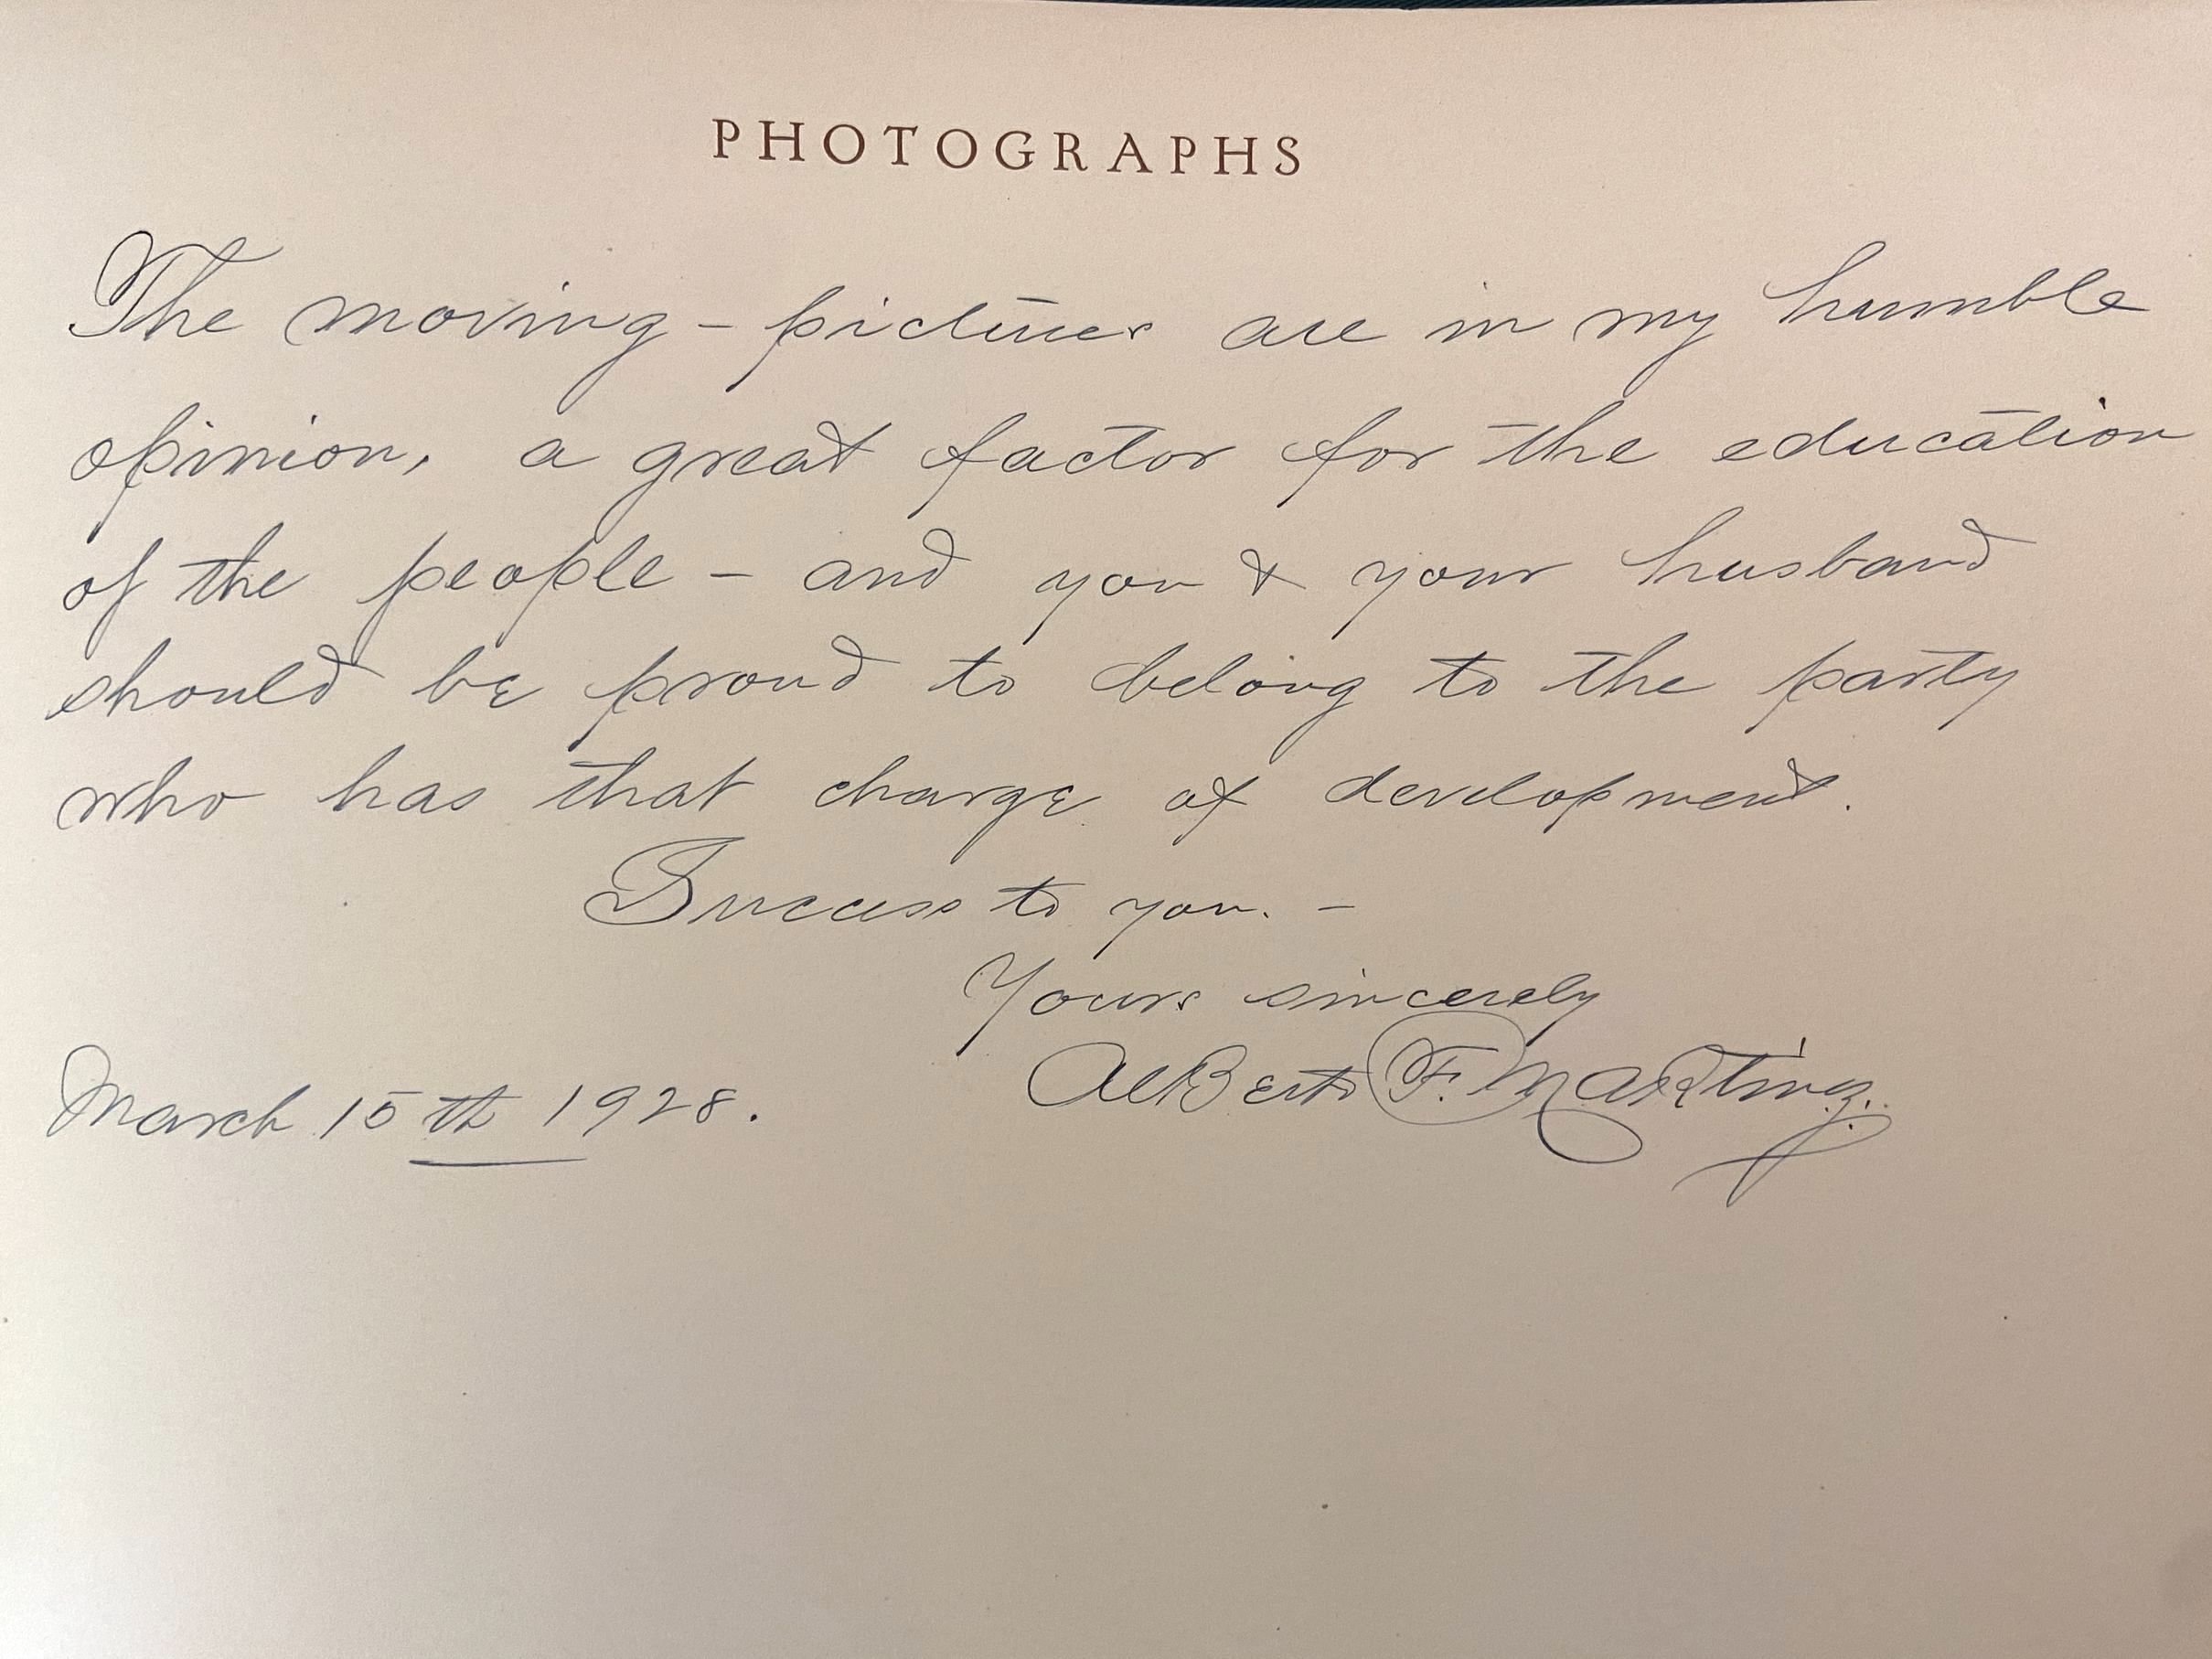 PHOTOGRAPHS
The moving - pictures are in my humble
opinion, a great factor for the education
of the people - and you & your husband
should be proud to belong to the party
who has that charge of development.
Success to you. -
Yours sincerely
Alberto F. Martinez.
March 15th 1928.